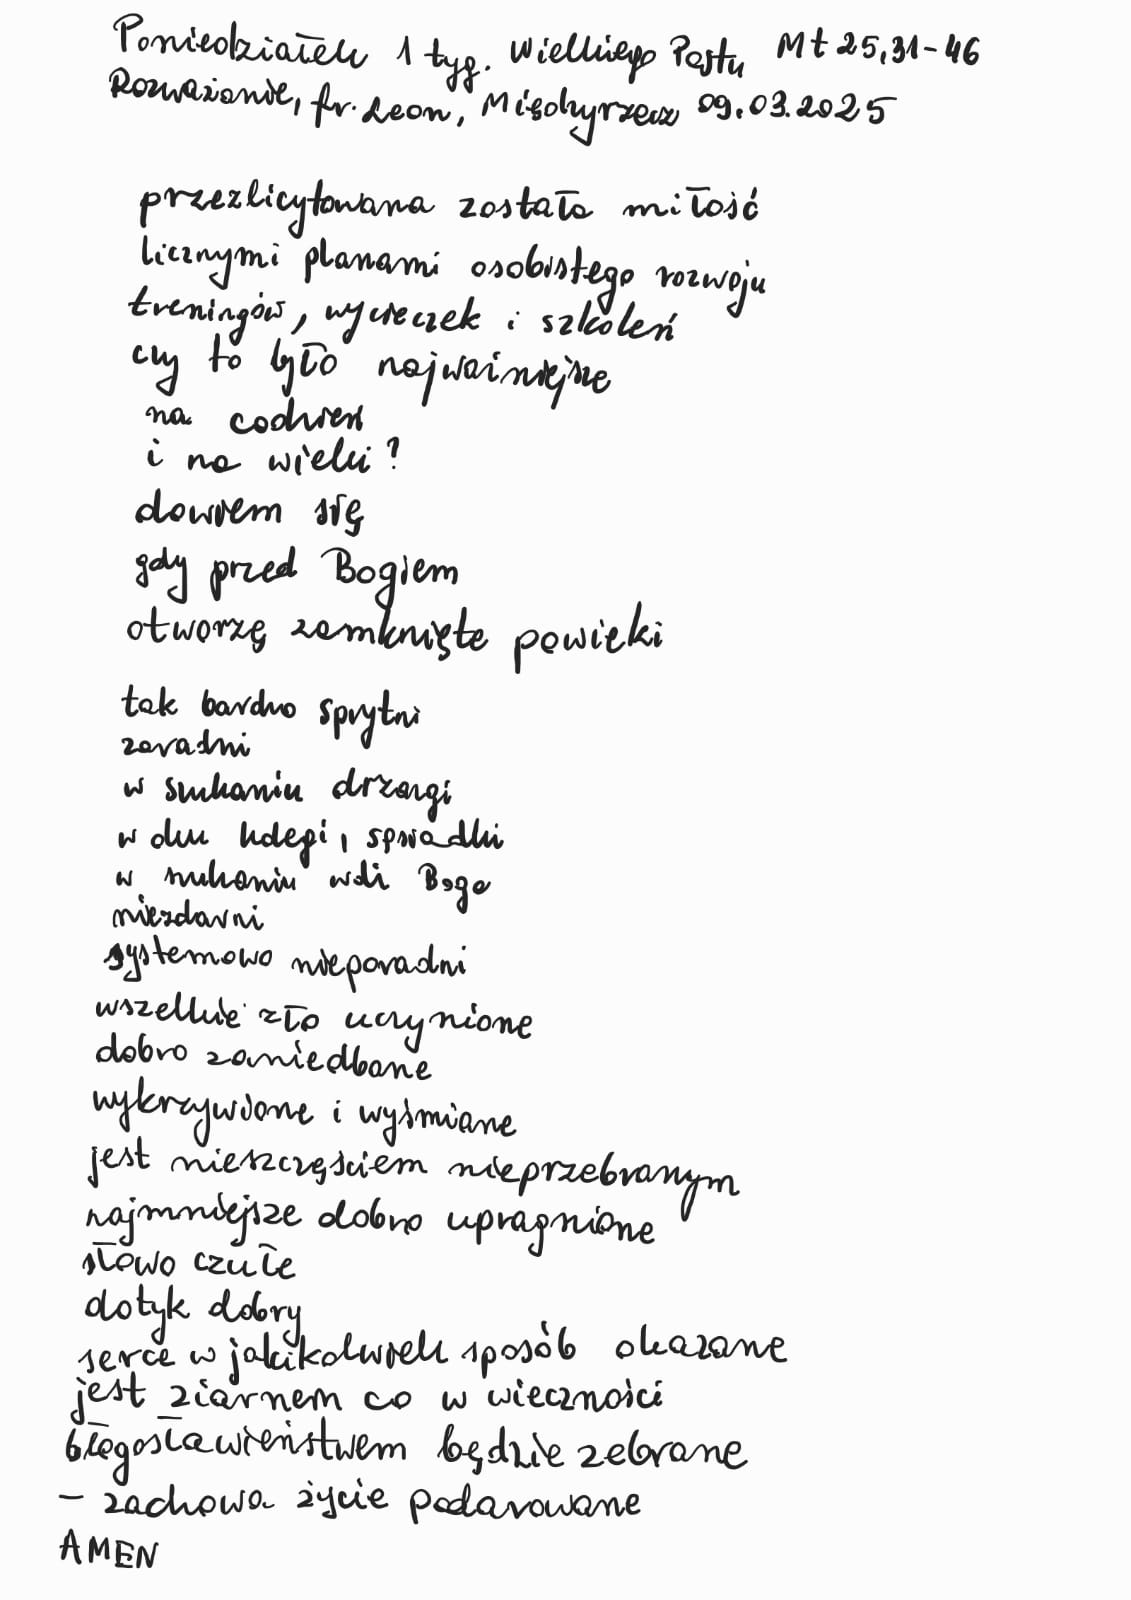 Poniedziałek 1 tyg. Wielkiego Postu Mt 25,31-46
Rozważanie, fr. Leon, Międzyrzecz 09.03.2025
przezlicytowana została miłość
licznymi planami osobistego rozwoju
treningów, wycieczek i szkoleń
czy to było najważniejsze
na codzień
i na wieki?
dowiem się
gdy przed Bogiem
otworzę zamknięte powieki
tak bardzo sprytni
zaradni
w szukaniu drzazgi
w oku kolegi, sąsiadki
w szukaniu woli Boga
niezdarni
systemowo nieporadni
wszelkie zło uczynione
dobro zaniedbane
wykrzywione i wyśmiane
jest nieszczęściem nieprzebranym
najmniejsze dobro upragnione
słowo czułe
dotyk dobry
serce w jakikolwiek sposób okazane
jest ziarnem co w wieczności
błogosławieństwem będzie zebrane
- zachowa życie podarowane
AMEN